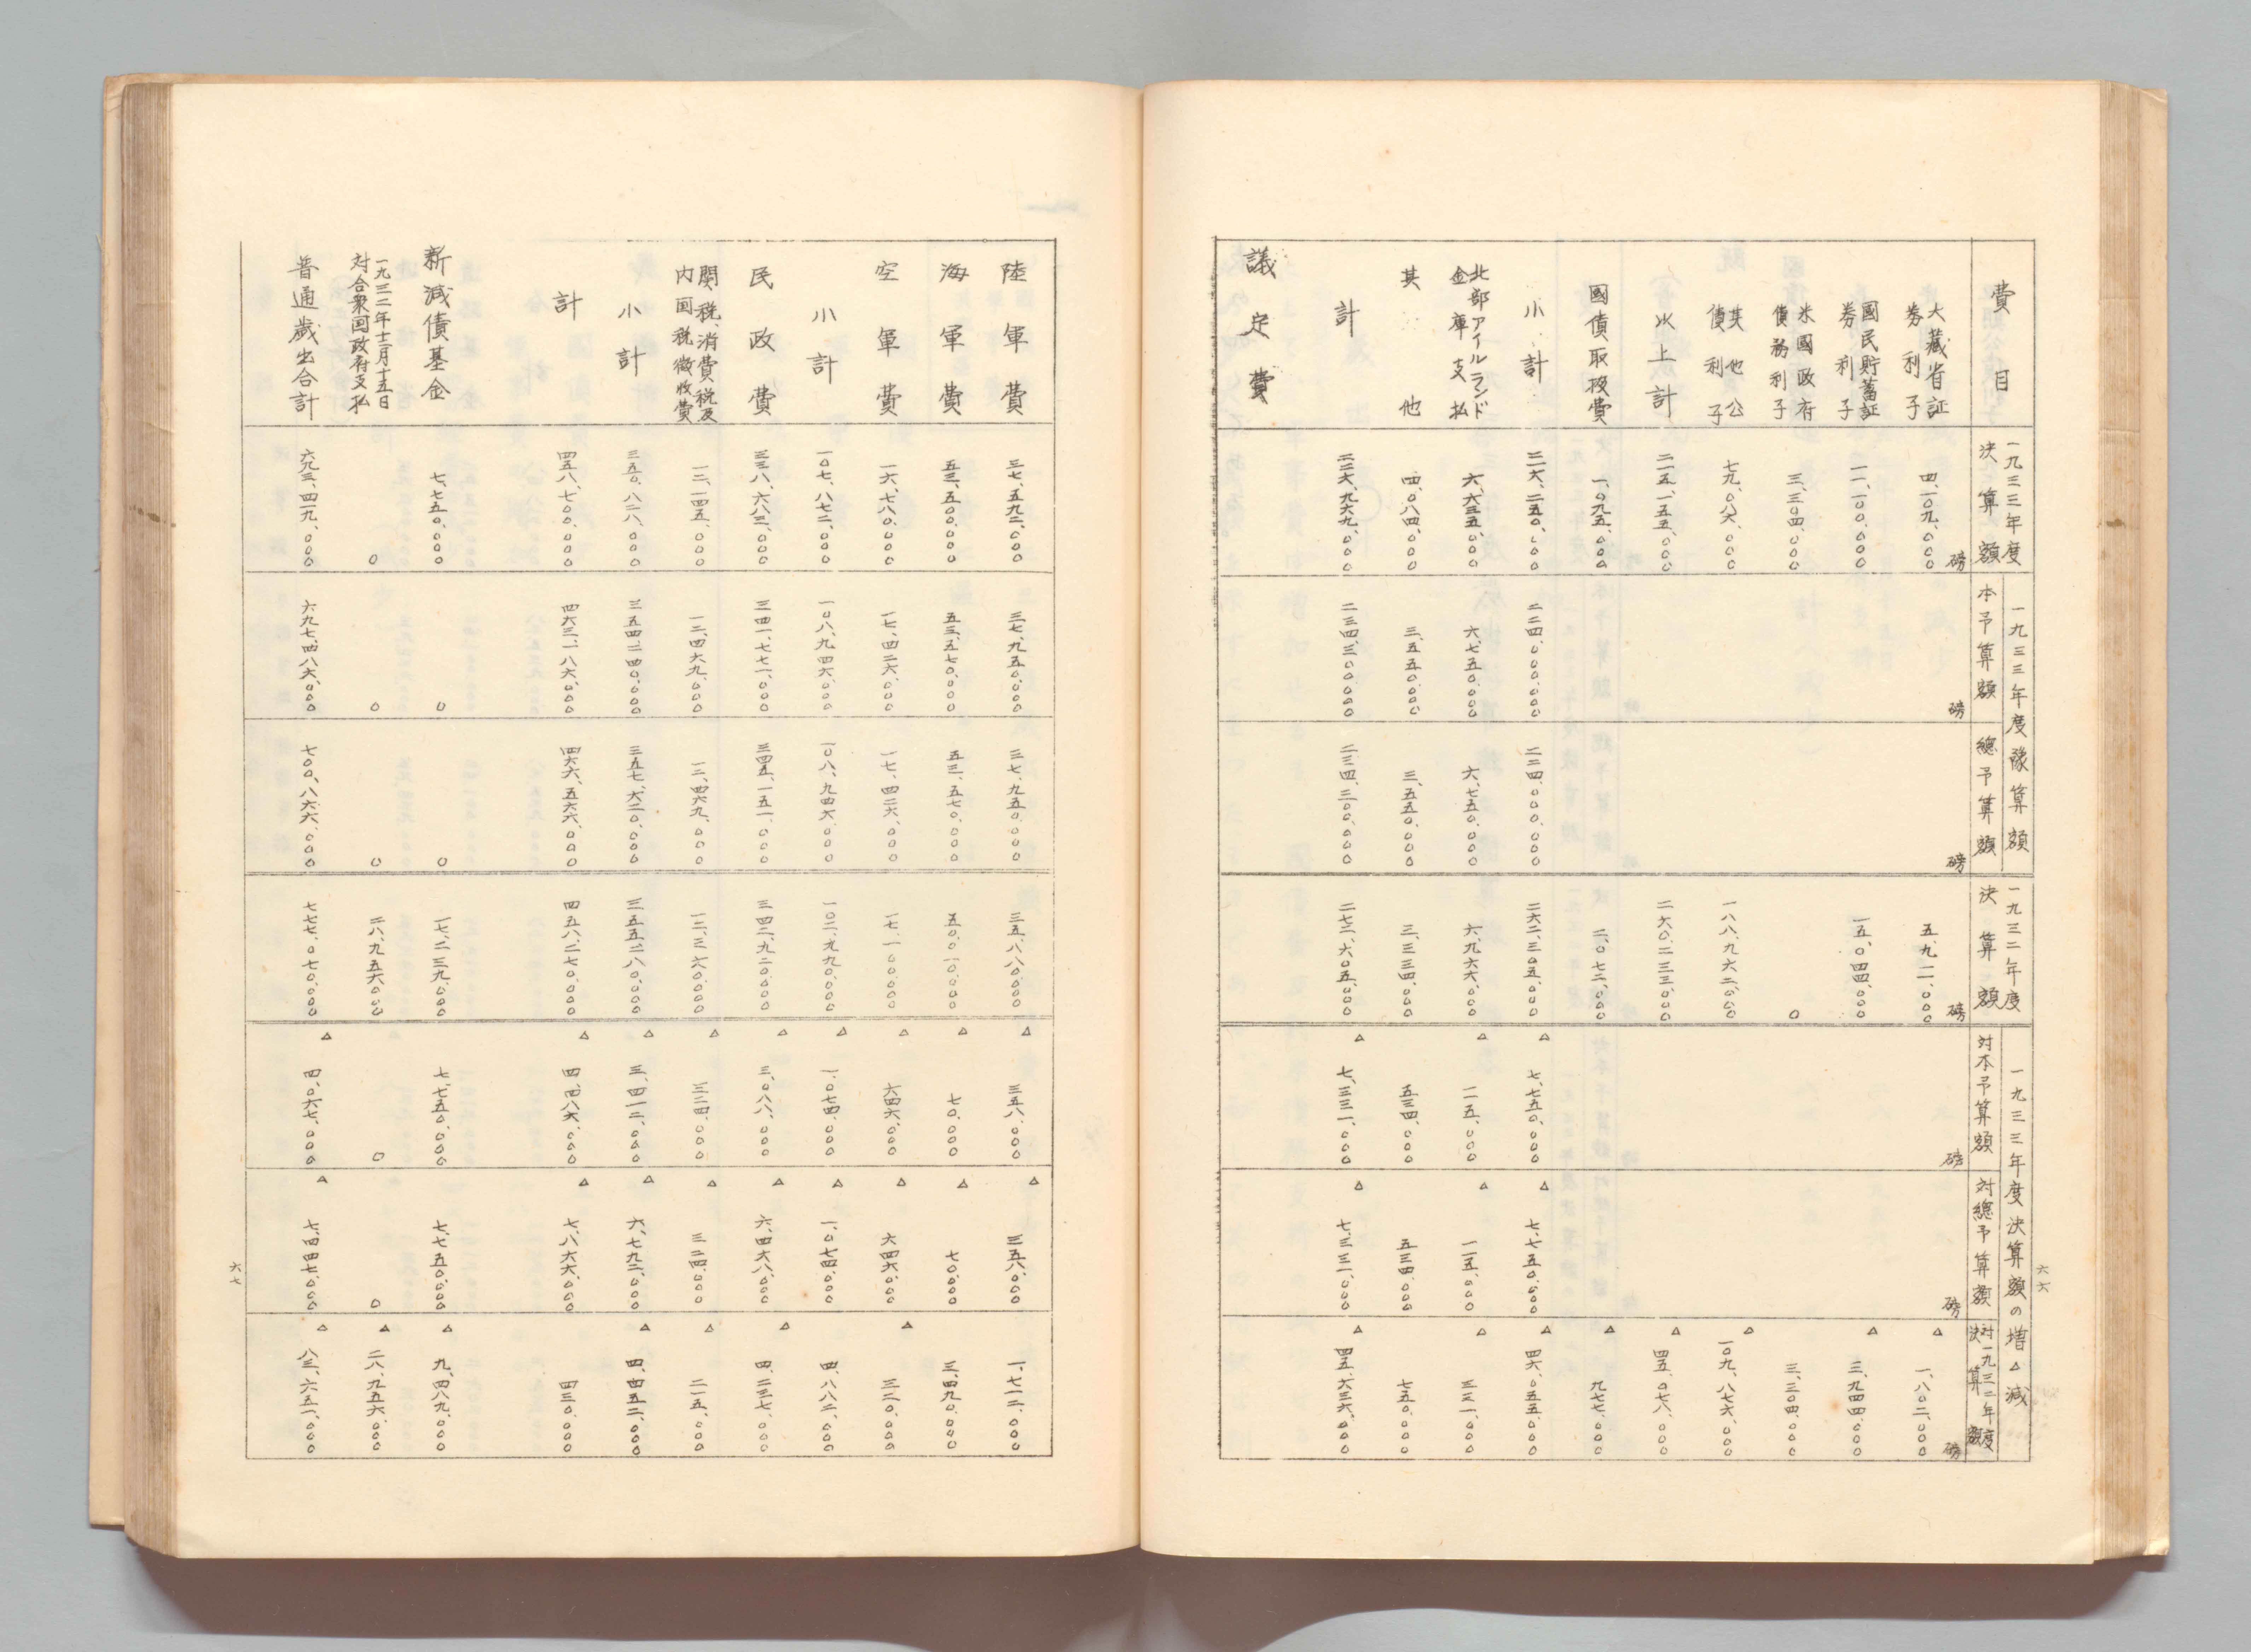 六六
費目 一九三三年度決算額 一九三三年度豫算額 一九三二年度決算額 一九三三年度決算額の増△減
本予算額 總予算額 対本予算額 対總予算額 対一九三二年度決算額
磅 磅 磅 磅 磅 磅 磅
大藏省証券利子 四、一〇九、〇〇〇 五、九一一、〇〇〇 △一、八〇二、〇〇〇
國民貯蓄証券利子 一一、一〇〇、〇〇〇 一五、〇四四、〇〇〇 △三、九四四、〇〇〇
米國政府債務利子 三、三〇四、〇〇〇 〇 三、三〇四、〇〇〇
其他公債利子 七九、〇八六、〇〇〇 一八八、九六二、〇〇〇 △一〇九、八七六、〇〇〇
以上計 二一五、一五五、〇〇〇 二六〇、二三三、〇〇〇 △四五、〇七八、〇〇〇
國債取扱費 一、〇九五、〇〇〇 二、〇七二、〇〇〇 △九七七、〇〇〇
小計 二一六、二五〇、〇〇〇 二二四、〇〇〇、〇〇〇 二二四、〇〇〇、〇〇〇 二六二、三〇五、〇〇〇 △七、七五〇、〇〇〇 △七、七五〇、〇〇〇 △四六、〇五五、〇〇〇
北部アイルランド金庫支払 六、六三五、〇〇〇 六、七五〇、〇〇〇 六、七五〇、〇〇〇 六、九六六、〇〇〇 △一一五、〇〇〇 △一一五、〇〇〇 △三三一、〇〇〇
其他 四、〇八四、〇〇〇 三、五五〇、〇〇〇 三、五五〇、〇〇〇 三、三三四、〇〇〇 五三四、〇〇〇 五三四、〇〇〇 七五〇、〇〇〇
計 二二六、九六九、〇〇〇 二三四、三〇〇、〇〇〇 二三四、三〇〇、〇〇〇 二七二、六〇五、〇〇〇 △七、三三一、〇〇〇 △七、三三一、〇〇〇 △四五、六三六、〇〇〇
議定費
陸軍費 三七、五九二、〇〇〇 三七、九五〇、〇〇〇 三七、九五〇、〇〇〇 三五、八八〇、〇〇〇 △三五八、〇〇〇 △三五八、〇〇〇 一、七一二、〇〇〇
海軍費 五三、五〇〇、〇〇〇 五三、五七〇、〇〇〇 五三、五七〇、〇〇〇 五〇、〇一〇、〇〇〇 △七〇、〇〇〇 △七〇、〇〇〇 三、四九〇、〇〇〇
空軍費 一六、七八〇、〇〇〇 一七、四二六、〇〇〇 一七、四二六、〇〇〇 一七、一〇〇、〇〇〇 △六四六、〇〇〇 △六四六、〇〇〇 △三二〇、〇〇〇
小計 一〇七、八七二、〇〇〇 一〇八、九四六、〇〇〇 一〇八、九四六、〇〇〇 一〇二、九九〇、〇〇〇 △一、〇七四、〇〇〇 △一、〇七四、〇〇〇 四、八八二、〇〇〇
民政費 三三八、六八三、〇〇〇 三四一、七七一、〇〇〇 三四五、一五一、〇〇〇 三四二、九二〇、〇〇〇 △三、〇八八、〇〇〇 △六、四六八、〇〇〇 △四、二三七、〇〇〇
関税、消費税及内国税徴收費 一二、一四五、〇〇〇 一二、四六九、〇〇〇 一二、四六九、〇〇〇 一二、三六〇、〇〇〇 △三二四、〇〇〇 △三二四、〇〇〇 △二一五、〇〇〇
小計 三五〇、八二八、〇〇〇 三五四、二四〇、〇〇〇 三五七、六二〇、〇〇〇 三五五、二八〇、〇〇〇 △三、四一二、〇〇〇 △六、七九二、〇〇〇 △四、四五二、〇〇〇
計 四五八、七〇〇、〇〇〇 四六三、一八六、〇〇〇 四六六、五六六、〇〇〇 四五八、二七〇、〇〇〇 △四、四八六、〇〇〇 △七、八六六、〇〇〇 四三〇、〇〇〇
新減債基金 七、七五〇、〇〇〇 〇 〇 一七、二三九、〇〇〇 七、七五〇、〇〇〇 七、七五〇、〇〇〇 △九、四八九、〇〇〇
一九三二年十二月十五日対合衆国政府支払 〇 〇 〇 二八、九五六、〇〇〇 〇 〇 △二八、九五六、〇〇〇
普通歳出合計 六九三、四一九、〇〇〇 六九七、四八六、〇〇〇 七〇〇、八六六、〇〇〇 七七七、〇七〇、〇〇〇 △四、〇六七、〇〇〇 △七、四四七、〇〇〇 △八三、六五一、〇〇〇
六七